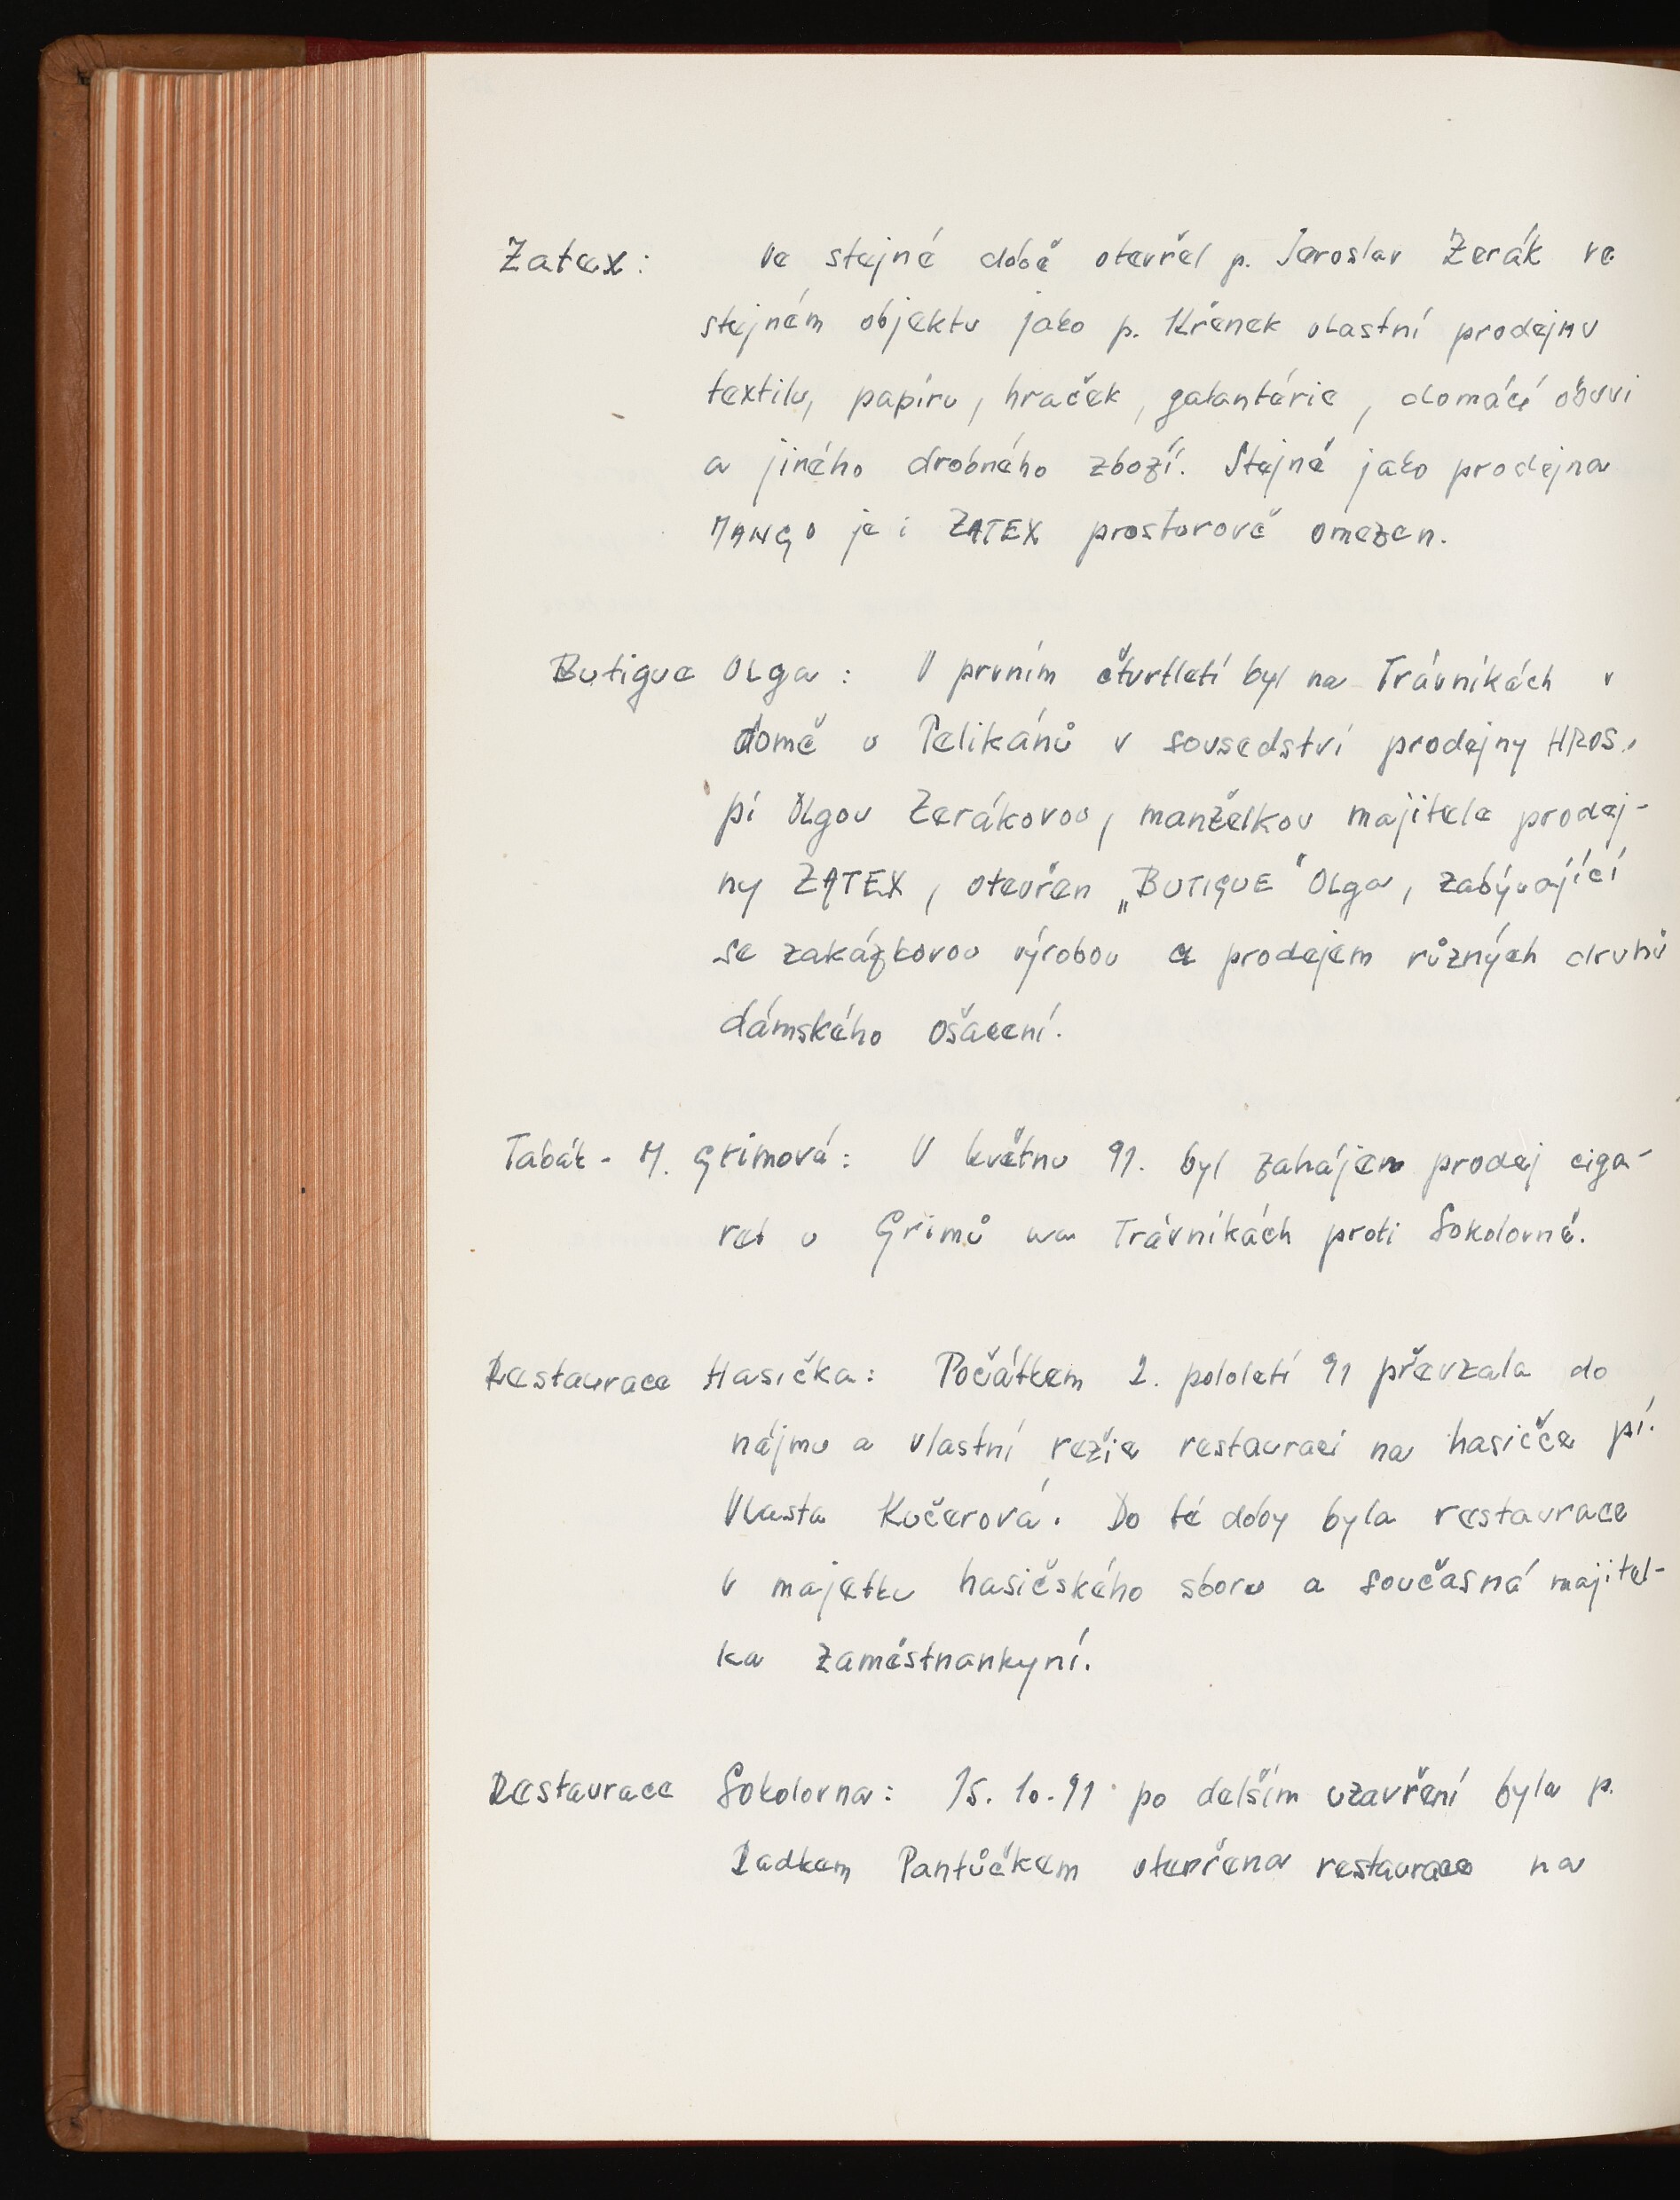 Zatex: Ve stejné době otevřel p. Jaroslav Žerák ve
stejném objektu jako p. Křenek vlastní prodejnu
textilu, papíru, hraček, galantérie, domácí obuvi
a jiného drobného zboží. Stejně jako prodejna
MANGO je i ZATEX prostorově omezen.
Butigue Olga: V prvním čtvrtletí byl na Trávníkách v
domě u Pelikánů v sousedství prodejny HROS,
pí Olgou Žerákovou, manželkou majitele prodej-
ny ZATEX, otevřen „BUTIGUE" Olga, zabývající
se zakázkovou výrobou a prodejem různých druhů
dámského ošacení.
Tabák - M. Grimová: V květnu 91. byl zahájen prodej ciga-
ret u Grimů na Trávníkách proti Sokolovně.
Restaurace Hasička: Počátkem 2. pololetí 91 převzala do
nájmu a vlastní režie restauraci na hasičce pí.
Vlasta Kučerová. Do té doby byla restaurace
v majetku hasičského sboru a současná majitel-
ka zaměstnankyní.
Restaurace Sokolovna: 15. 10. 91 po delším uzavření byla p.
Radkem Pantůčkem otevřena restaurace na